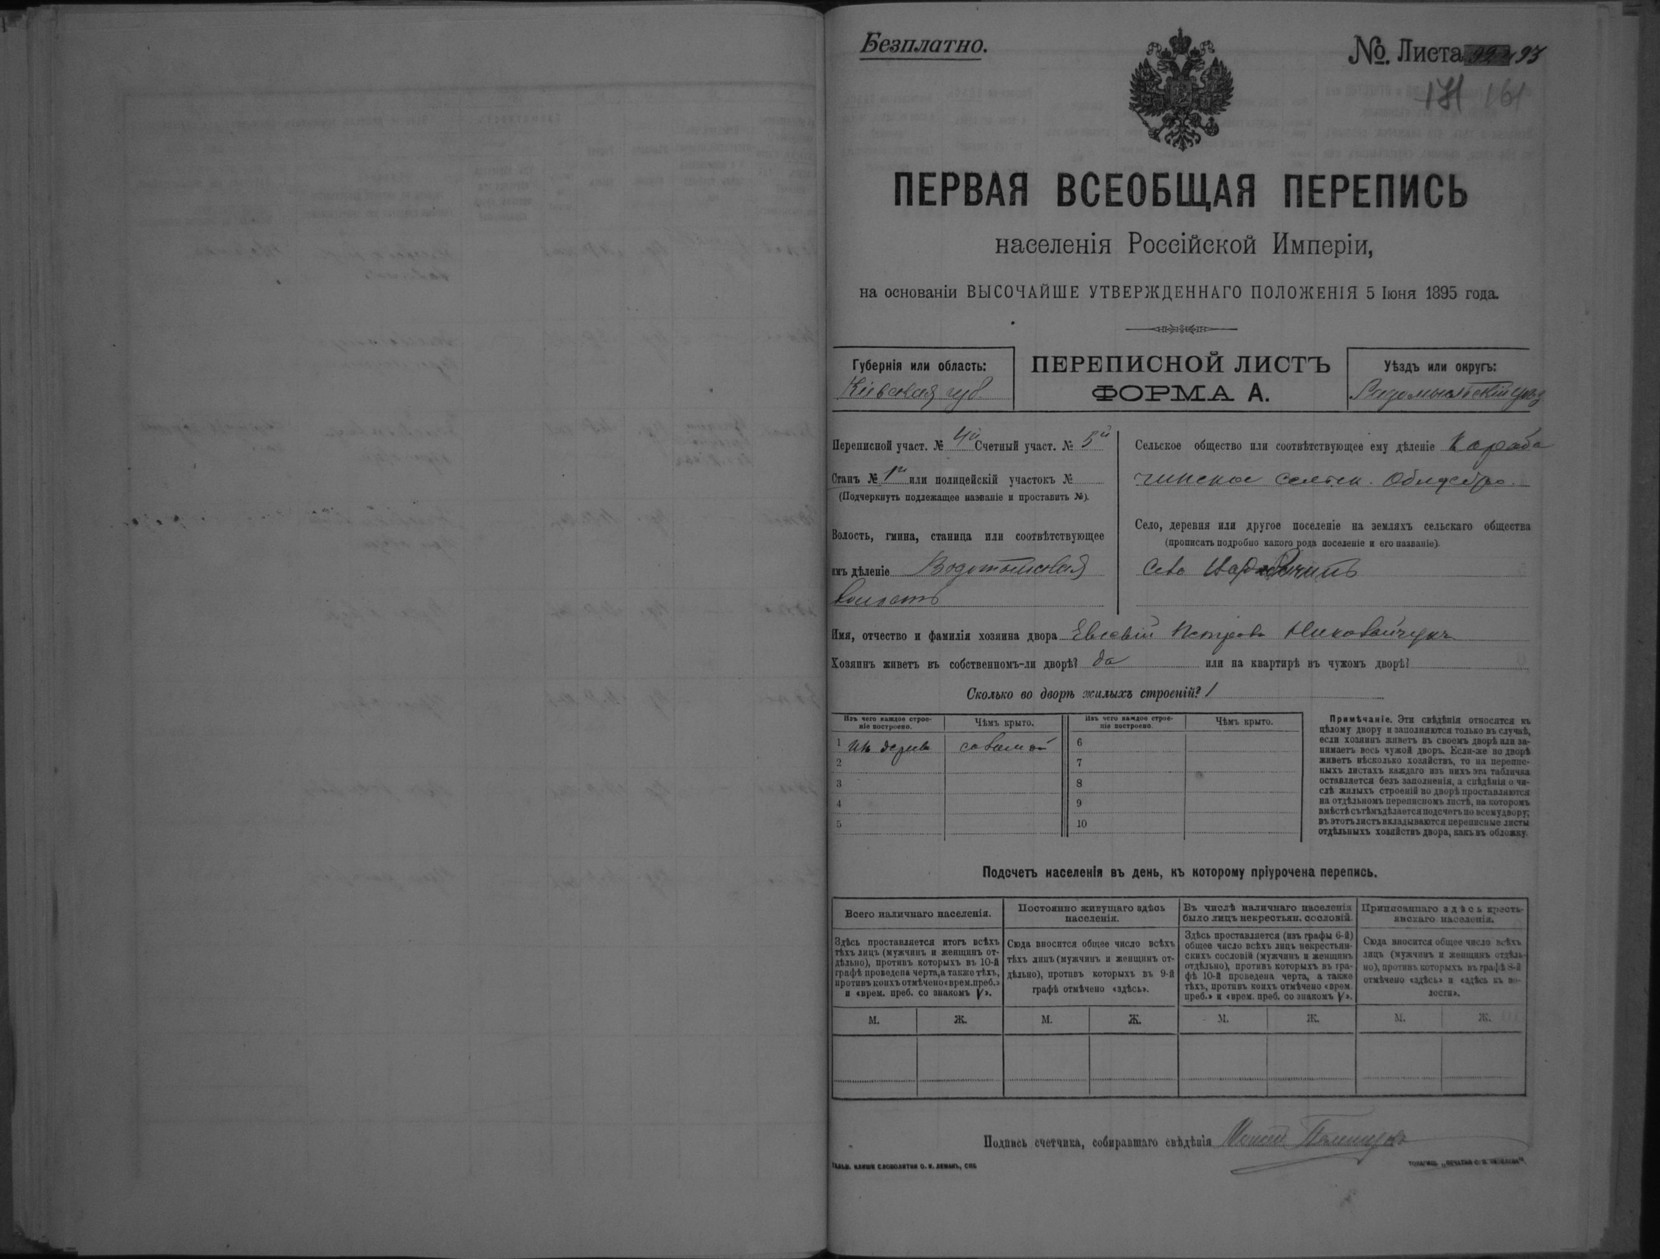 Безплатно.
№. Листа 93
171 161
ПЕРВАЯ ВСЕОБЩАЯ ПЕРЕПИСЬ
населенія Россійской Имперіи,
на основаніи ВЫСОЧАЙШЕ УТВЕРЖДЕННАГО ПОЛОЖЕНІЯ 5 Іюня 1895 года.
Губернія или область:
Кіевская губ.
ПЕРЕПИСНОЙ ЛИСТЪ
ФОРМА А.
Уѣздъ или округъ:
Радомысльскій уѣзд
Переписной участ. № 4й Счетный участ. № 5й
Станъ № 1й или полицейскій участокъ №
(Подчеркнуть подлежащее названіе и проставить №).
Волость, гмина, станица или соотвѣтствующее
имъ дѣленіе Водотыйская
волость
Сельское общество или соотвѣтствующее ему дѣленіе Караба
чинское сельск. Общество.
Село, деревня или другое поселеніе на земляхъ сельскаго общества
(прописать подробно какого рода поселеніе и его названіе).
село Карабачинъ
Имя, отчество и фамилія хозяина двора Евсевій Петровъ Николайчукъ
Хозяинъ живетъ въ собственномъ-ли дворѣ? да или на квартирѣ въ чужомъ дворѣ?
Сколько во дворѣ жилыхъ строеній? 1
Изъ чего каждое строе-
ніе построено.
Чѣмъ крыто.
Изъ чего каждое строе-
ніе построено.
Чѣмъ крыто.
1 изъ дерева соломой
2
3
4
5
6
7
8
9
10
Примѣчаніе. Эти свѣдѣнія относятся къ
цѣлому двору и заполняются только въ случаѣ,
если хозяинъ живетъ въ своемъ дворѣ или за-
нимаетъ весь чужой дворъ. Если-же во дворѣ
живетъ нѣсколько хозяйствъ, то на перепис-
ныхъ листахъ каждаго изъ нихъ эта табличка
оставляется безъ заполненія, а свѣдѣнія о чи-
слѣ жилыхъ строеній во дворѣ проставляются
на отдѣльномъ переписномъ листѣ, на которомъ
вмѣстѣ съ тѣмъ дѣлается подсчетъ по всему двору;
въ этотъ листъ вкладываются переписные листы
отдѣльныхъ хозяйствъ двора, какъ въ обложку.
Подсчетъ населенія въ день, къ которому пріурочена перепись.
Всего наличнаго населенія.
Здѣсь проставляется итогъ всѣхъ
тѣхъ лицъ (мужчинъ и женщинъ от-
дѣльно), противъ которыхъ въ 10-й
графѣ проведена черта, а также тѣхъ,
противъ коихъ отмѣчено «врем. преб.»
и «врем. преб. со знакомъ V».
Постоянно живущаго здѣсь
населенія.
Сюда вносится общее число всѣхъ
тѣхъ лицъ (мужчинъ и женщинъ от-
дѣльно), противъ которыхъ въ 9-й
графѣ отмѣчено «здѣсь».
Въ числѣ наличнаго населенія
было лицъ некрестьян. сословій.
Здѣсь проставляется (изъ графы 6-й)
общее число всѣхъ лицъ некрестьян-
скихъ сословій (мужчинъ и женщинъ
отдѣльно), противъ которыхъ въ гра-
фѣ 10-й проведена черта, а также
тѣхъ, противъ коихъ отмѣчено «врем.
преб.» и «врем. преб. со знакомъ V».
Приписаннаго здѣсь кресть-
янскаго населенія.
Сюда вносится общее число всѣхъ
лицъ (мужчинъ и женщинъ отдѣль-
но), противъ которыхъ въ графѣ 8-й
отмѣчено «здѣсь» и «здѣсь въ во-
лости».
М. Ж. М. Ж. М. Ж. М. Ж.
Подпись счетчика, собиравшаго свѣдѣнія